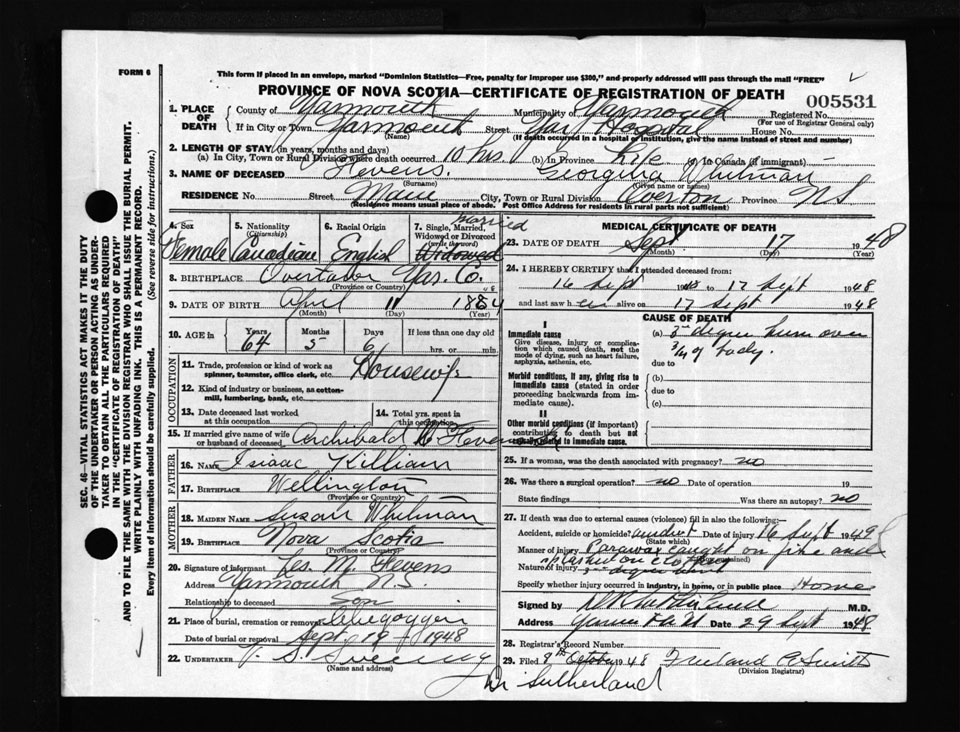 FORM 6
This form if placed in an envelope, marked "Dominion Statistics—Free, penalty for improper use $300," and properly addressed will pass through the mail "FREE"
PROVINCE OF NOVA SCOTIA—CERTIFICATE OF REGISTRATION OF DEATH
005531
1. PLACE OF DEATH
County of Yarmouth Municipality of Yarmouth Registered No.
(For use of Registrar General only)
If in City or Town Yarmouth Street Yar. Hospital House No.
(Name) (If death occurred in a hospital or institution, give the name instead of street and number)
2. LENGTH OF STAY (in years, months and days)
(a) In City, Town or Rural Division where death occurred 10 hrs. (b) In Province Life (c) In Canada (if immigrant) —
3. NAME OF DECEASED Stevens. Georgina Whitman
(Surname) (Given name or names)
RESIDENCE No. Street Main City, Town or Rural Division Overton Province NS
(Residence means usual place of abode. Post Office Address for residents in rural parts not sufficient)
4. Sex Female
5. Nationality (Citizenship) Canadian
6. Racial Origin English
7. Single, Married, Widowed or Divorced (write the word) Married Widowed
8. BIRTHPLACE Yar. Co.
(Province or Country)
9. DATE OF BIRTH April 11 1884
(Month) (Day) (Year)
10. AGE in Years 64 Months 5 Days 6 If less than one day old hrs. or min.
OCCUPATION
11. Trade, profession or kind of work as spinner, teamster, office clerk, etc. Housewife
12. Kind of industry or business, as cotton-mill, lumbering, bank, etc.
13. Date deceased last worked at this occupation
14. Total yrs. spent in this occupation
15. If married give name of wife or husband of deceased Archibald Stevens
FATHER
16. NAME Isaac Killiam
17. BIRTHPLACE Wellington
(Province or Country)
MOTHER
18. MAIDEN NAME Susan Whitman
19. BIRTHPLACE Nova Scotia
(Province or Country)
20. Signature of informant Les. M. Stevens
Address Yarmouth N.S.
Relationship to deceased Son
21. Place of burial, cremation or removal Chebogue
Date of burial or removal Sept. 19 1948
22. UNDERTAKER V. S. Sweeny
(Name and address)
MEDICAL CERTIFICATE OF DEATH
23. DATE OF DEATH Sept 17 1948
(Month) (Day) (Year)
24. I HEREBY CERTIFY that I attended deceased from:
16 Sept 1948 to 17 Sept 1948
and last saw her alive on 17 Sept 1948
CAUSE OF DEATH
I
Immediate cause
Give disease, injury or complication which caused death, not the mode of dying, such as heart failure, asphyxia, asthenia, etc.
(a) 3rd degree burn over 3/4 of body.
due to
Morbid conditions, if any, giving rise to immediate cause (stated in order proceeding backwards from immediate cause).
(b)
due to
(c)
II
Other morbid conditions (if important) contributing to death but not causally related to immediate cause.
25. If a woman, was the death associated with pregnancy? no
26. Was there a surgical operation? no Date of operation 19
State findings Was there an autopsy? no
27. If death was due to external causes (violence) fill in also the following:—
Accident, suicide or homicide? accident Date of injury 16 Sept 1948
(State which)
Manner of injury caught on fire and splashed on clothing
Nature of injury 3rd degree burn
Specify whether injury occurred in industry, in home, or in public place Home
Signed by M.D.
Address Date 29 Sept 1948
28. Registrar's Record Number
29. Filed 8th October 1948 Freeland A Smith
(Division Registrar)
Dr Sutherland
SEC. 46—VITAL STATISTICS ACT MAKES IT THE DUTY OF THE UNDERTAKER OR PERSON ACTING AS UNDERTAKER TO OBTAIN ALL THE PARTICULARS REQUIRED IN THE "CERTIFICATE OF REGISTRATION OF DEATH" AND TO FILE THE SAME WITH THE DIVISION REGISTRAR WHO SHALL ISSUE THE BURIAL PERMIT.
WRITE PLAINLY WITH UNFADING INK. THIS IS A PERMANENT RECORD.
Every item of information should be carefully supplied. (See reverse side for instructions.)